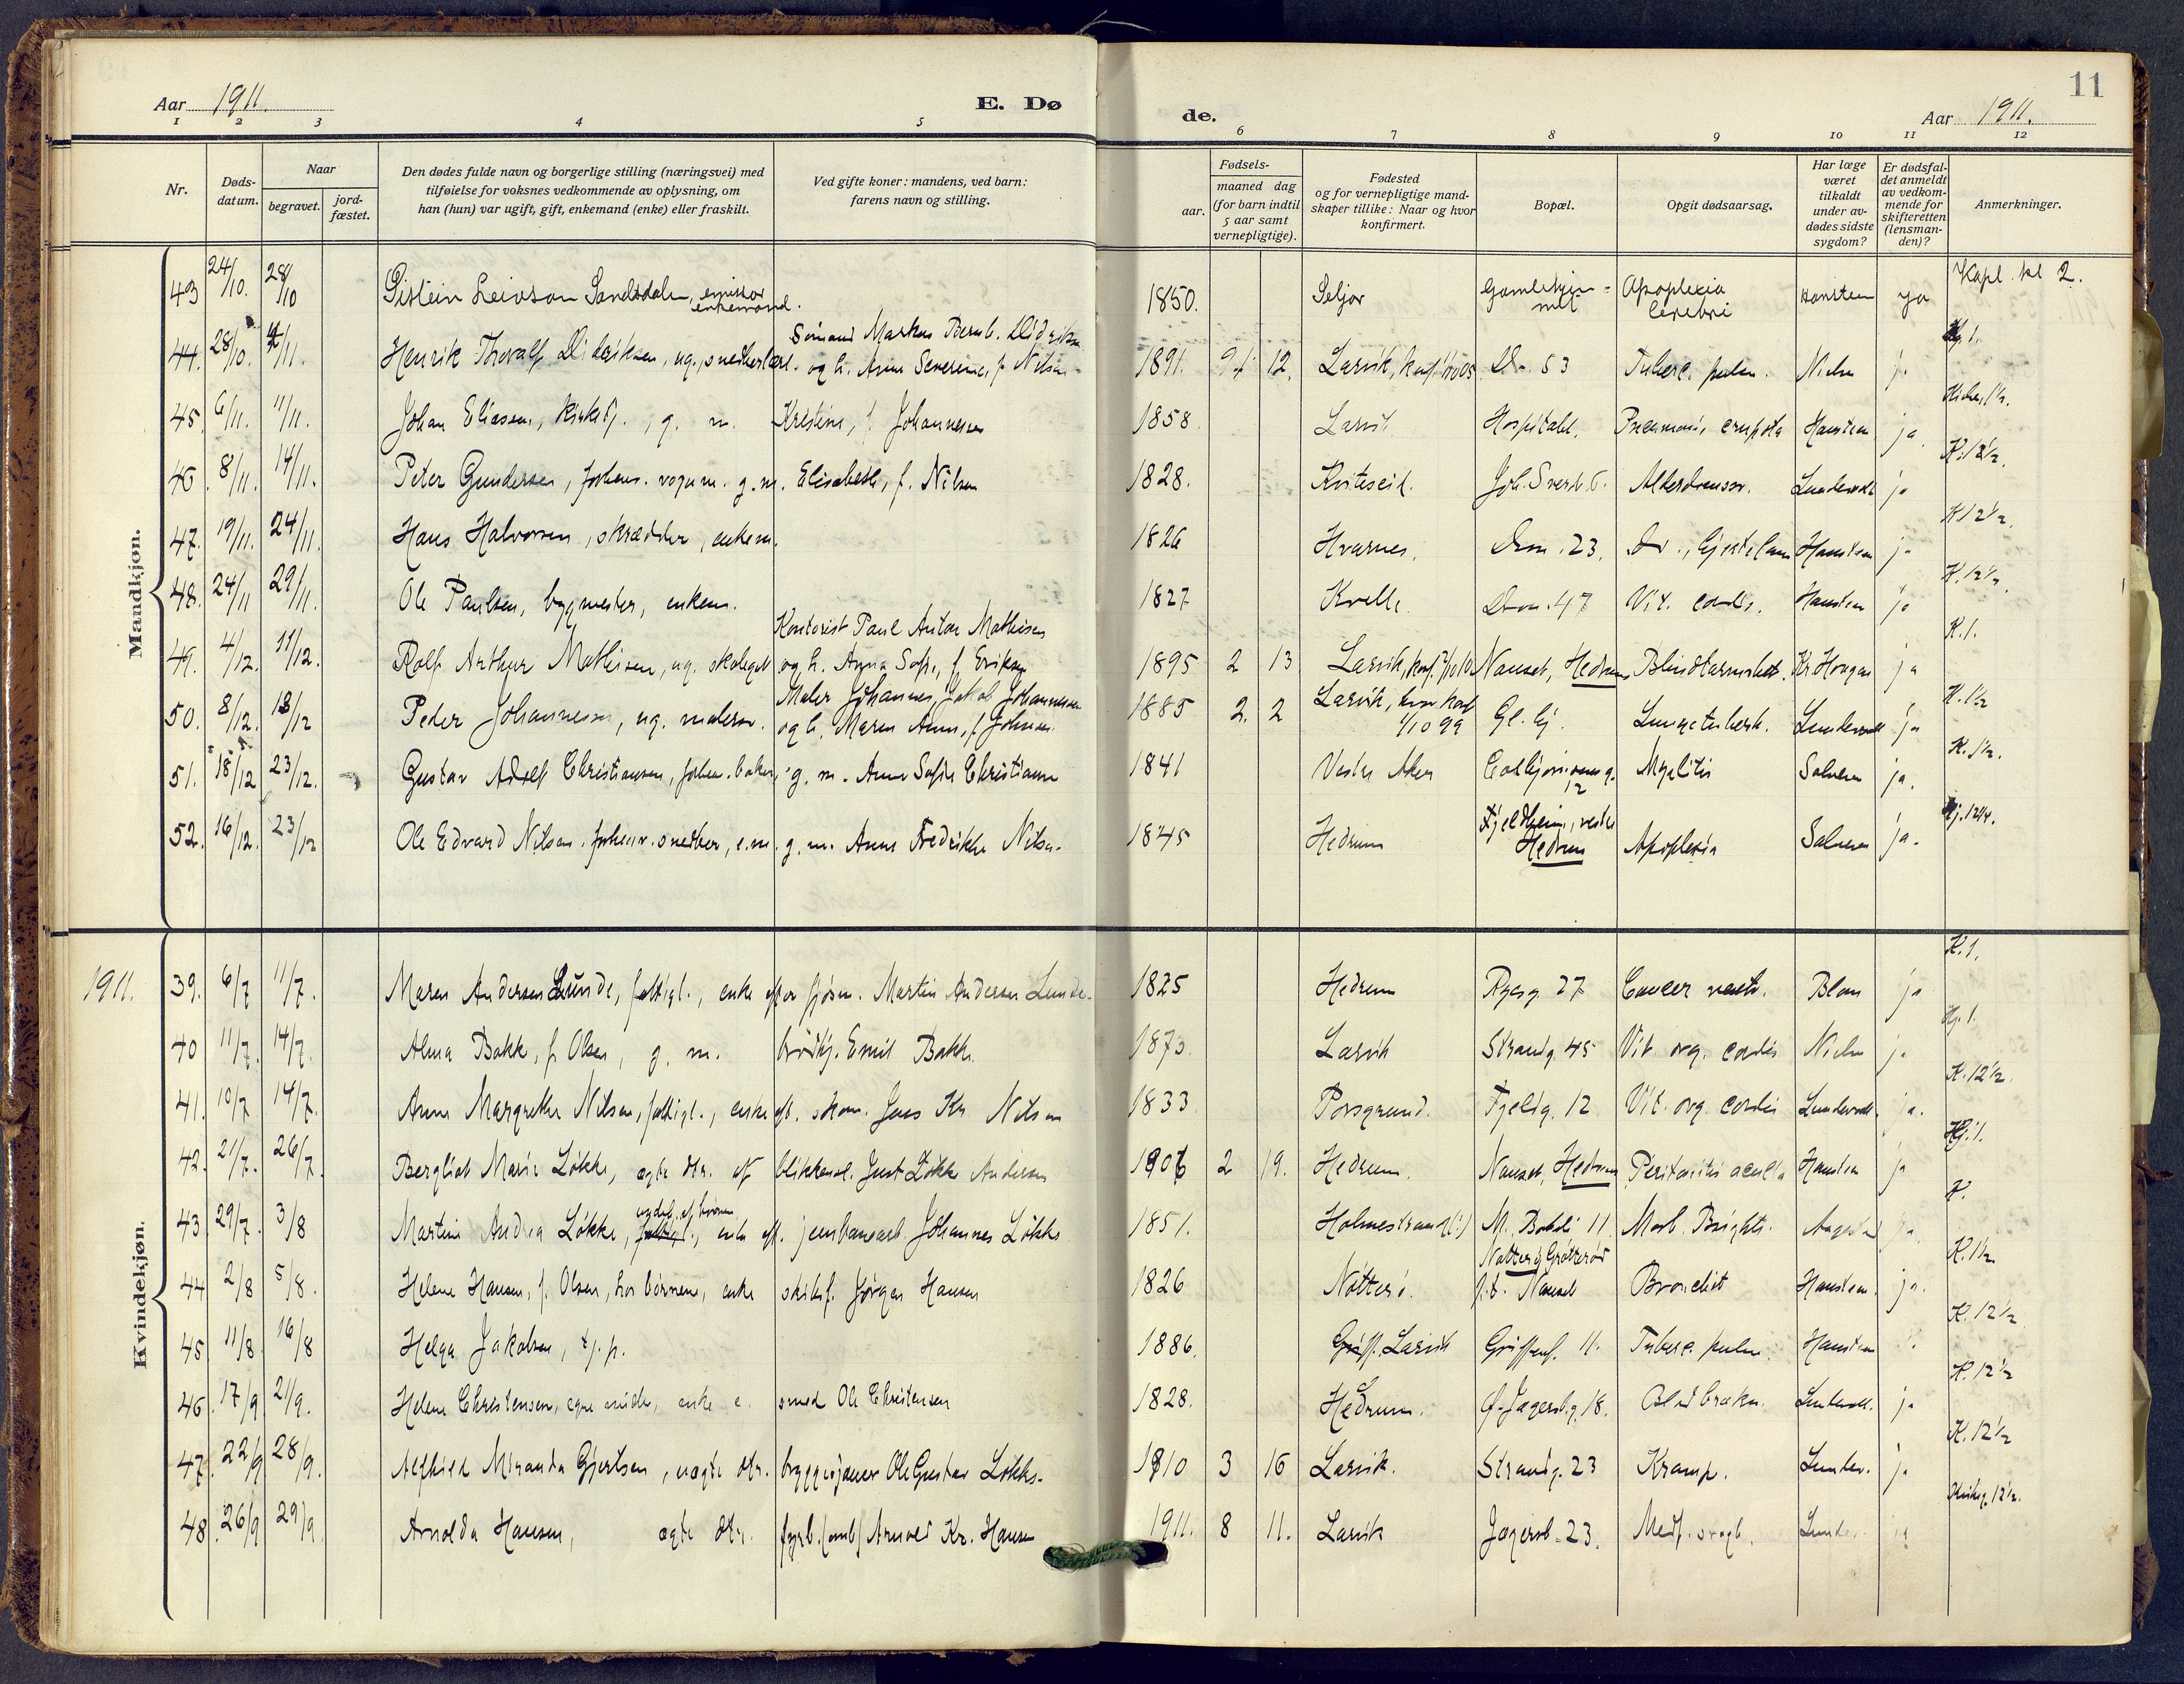 11
Aar 1911. E. Dø de. Aar 1911.
1 2 3 4 5 6 7 8 9 10 11 12
Nr. Døds-datum. Naar begravet. jord-fæstet. Den dødes fulde navn og borgerlige stilling (næringsvei) med tilføielse for voksnes vedkommende av oplysning, om han (hun) var ugift, gift, enkemand (enke) eller fraskilt. Ved gifte koner: mandens, ved barn: farens navn og stilling. Fødsels- aar. maaned dag (for barn indtil 5 aar samt vernepligtige). Fødested og for vernepligtige mand-skaper tillike: Naar og hvor konfirmert. Bopæl. Opgit dødsaarsag. Har læge været tilkaldt under av-dødes sidste sygdom? Er dødsfal-det anmeldt av vedkom-mende for skifteretten (lensman-den)? Anmerkninger.
Mandkjøn.
43 24/10. 28/10 Leivson Sandsdalen, emissær enkemand. 1850. Seljor Apoplexia Cerebri Hansteen ja Kapl. kl 2.
44. 28/10. 4/11. Henrik Thoralf Didriksen, ug., snedkerlærl. Sömand Markus Bernh. Didriksen og h. Anne Severine, f. Nilsen 1891. 12. Larvik, Do 53 Tuberc. pulm. Nielsen j
45. 6/11. 11/11. Johan Eliasen, g. m. Kristine, f. Johannesen 1858. Larvik Hospitalet. Pneumoni, cruposa Hansteen ja
46. 8/11. 14/11. Peter Gundersen, forhenv. vognm. g. m. Elisabeth, f. Nilsen 1828. Kviteseid. Joh. Sverd. 6. Alderdomssv. Lundevold ja K. 12½.
47. 19/11. 24/11. Hans Halvorsen, skrædder, enkem. 1826 Hvarnes. Dron. 23. Hansteen ja K 12½.
48. 24/11 29/11. Ole Paulsen, bygmester, enkem. 1827 Kvelle. Dron. 47 Vit. cordis. Hansteen ja K. 12½.
49. 4/12. 11/12. Rolf Arthur Mathisen, ug. skolegut Kontorist Paul Anton Mathisen og h. Anna Sofie, f Eriksen 1895 2 13 Larvik, Nanset, Hedrum Kr. Haugen ja K. 1.
50. 8/12. 13/12 Peder Johannesen, ug. malersv. Maler Johannes Jakob Johannesen og h. Maren Anne, f Johnsen 1885 2. 2 Larvik, 1/10 99 Lungetuberk. Lundevold ja K. 1½
51. 18/12 23/12. Gustav Adolf Christiansen, forhen. baker, g. m. Anne Sofie Christiansen 1841 Vestre Aker 12 Myelitis Salvesen ja. K. 1½.
52. 16/12. 23/12 Ole Edvard Nilsen. forhenv. snedker, e.m. g. m. Anne Fredrikke Nilsen. 1845 Hedrum Fjeldheim, vestre Hedrum Apoplexia Salvesen ja. 12¼.
Kvindekjøn.
1911. 39. 6/7 11/7. Maren Andersen Lunde, fattigl., enke efter sjøm. Martin Andersen Lunde. 1825 Hedrum Rygg 27 Cancer ventr. Blom ja K. 1.
40 11/7. 14/7. Alma Bakk, f. Olsen, g. m. Emil Bakk. 1873. Larvik Strandg. 45 Vit. org. cordis Nielsen ja Kj. 1.
41. 10/7 14/7. Anne Margrethe Nilsen, fattigl., enke eft. skom. Jens Kr. Nilsen 1833 Porsgrund. Fjeldg. 12 Vit. org. cordis Lundevold. ja. K. 12½.
42. 21/7. 26/7. Bergliot Marie Løkke, ægte dtr. af blikkensl. Just Løkke Andersen 1906 2 19. Hedrum. Nanset, Hedrum Peritonitis acuta Hansteen ja
43. 29/7. 3/8 Martine Andrea Løkke, fattigl., enke eft. jernbanearb. Johannes Løkke 1851. Holmestrand (:) 11 Morb. Brightii. K.
44 2/8 5/8. Helene Hansen, f. Olsen, hos børnene, enke skibsf. Jørgen Hansen 1826 Nøtterø. Nøtterø p.t. Nanset Bronchit Hansteen. ja. K. 1½
45 11/8 16/8 Helga Jakobsen, tj. p. 1886. Larvik 11. Tuberc. pulm. Hansteen K. 12½
46. 17/9 21/9. Helene Christensen, egne midler, enke e. smed Ole Christensen 1828. Hedrum. Ø. Jegersb.g. 18. Lundevold. ja K. 12½
47. 22/9 28/9. Alfhild Miranda Gjertsen, uægte dtr. bryggesjauer Ole Gustav Løkke. 1910 3 16 Larvik. Strandg. 23 Kramp. Lundev. ja K. 12½
48. 26/9 29/9. Arnolda Hansen, ægte dtr. fyrb. Arnold Kr. Hansen 1911. 8 11. Larvik Jegersb. 23. Medf. svagh. Lunde ja 12½.